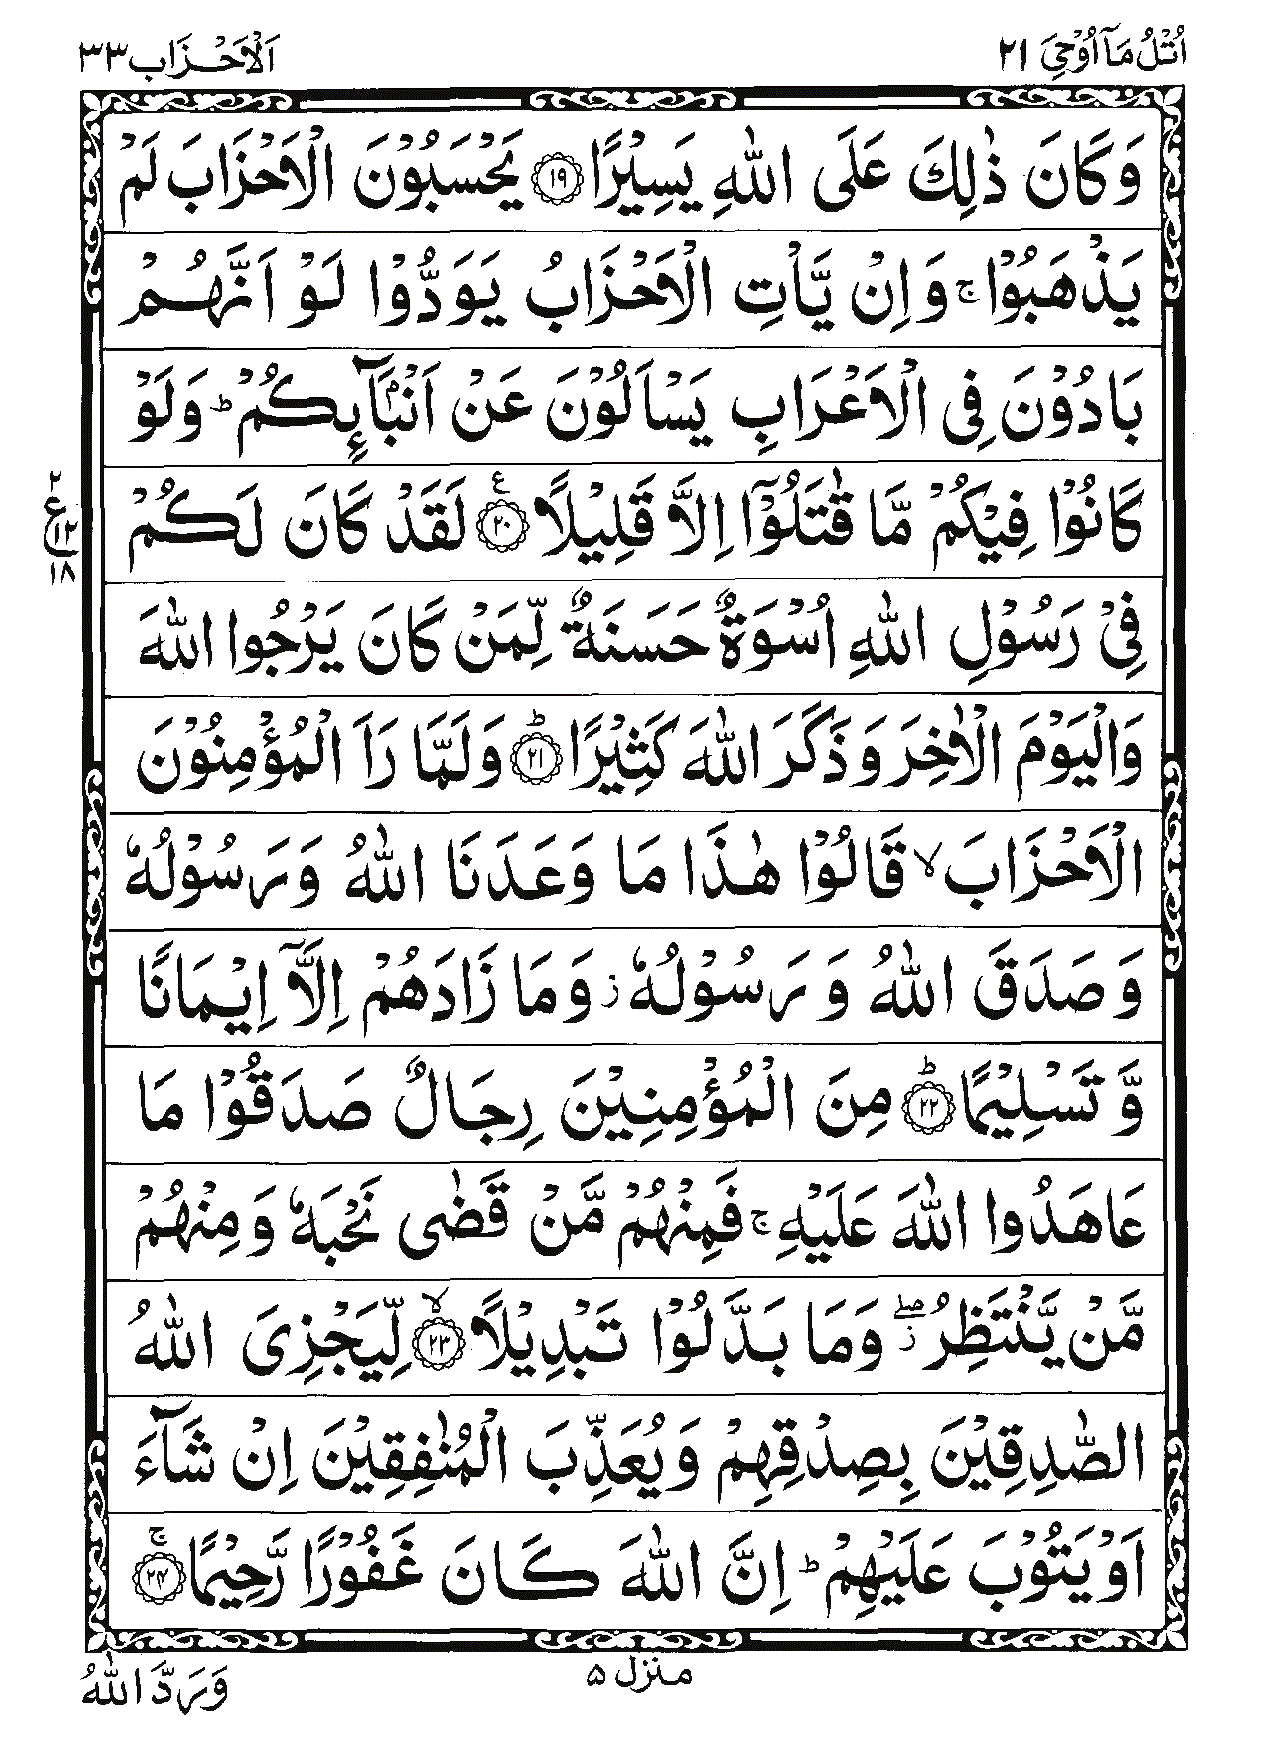 اُتْلُ مَاۤ اُوْحِیَ ۲۱
اَلْاَحْزَاب ۳۳
وَكَانَ ذٰلِكَ عَلَى اللّٰهِ يَسِيْرًا ۝۱۹ يَحْسَبُوْنَ الْاَحْزَابَ لَمْ
يَذْهَبُوْا ۚ وَاِنْ يَّاْتِ الْاَحْزَابُ يَوَدُّوْا لَوْ اَنَّهُمْ
بَادُوْنَ فِى الْاَعْرَابِ يَسْاَلُوْنَ عَنْ اَنْۢبَآئِكُمْ ؕ وَلَوْ
كَانُوْا فِيْكُمْ مَّا قٰتَلُوْۤا اِلَّا قَلِيْلًا ۝۲۰ ع لَقَدْ كَانَ لَكُمْ
۲
ع
۱۲
۱۸
فِىْ رَسُوْلِ اللّٰهِ اُسْوَةٌ حَسَنَةٌ لِّمَنْ كَانَ يَرْجُوا اللّٰهَ
وَالْيَوْمَ الْاٰخِرَ وَذَكَرَ اللّٰهَ كَثِيْرًا ؕ ۝۲۱ وَلَمَّا رَاَ الْمُؤْمِنُوْنَ
الْاَحْزَابَ ۙ قَالُوْا هٰذَا مَا وَعَدَنَا اللّٰهُ وَرَسُوْلُهٗ
وَصَدَقَ اللّٰهُ وَرَسُوْلُهٗ ز وَمَا زَادَهُمْ اِلَّاۤ اِيْمَانًا
وَّتَسْلِيْمًا ؕ ۝۲۲ مِنَ الْمُؤْمِنِيْنَ رِجَالٌ صَدَقُوْا مَا
عَاهَدُوا اللّٰهَ عَلَيْهِ ۚ فَمِنْهُمْ مَّنْ قَضٰى نَحْبَهٗ وَمِنْهُمْ
مَّنْ يَّنْتَظِرُ ۖ ز وَمَا بَدَّلُوْا تَبْدِيْلًا ۙ ۝۲۳ لِّيَجْزِىَ اللّٰهُ
الصّٰدِقِيْنَ بِصِدْقِهِمْ وَيُعَذِّبَ الْمُنٰفِقِيْنَ اِنْ شَآءَ
اَوْ يَتُوْبَ عَلَيْهِمْ ؕ اِنَّ اللّٰهَ كَانَ غَفُوْرًا رَّحِيْمًا ۚ ۝۲۴
منزل ۵
وَرَدَّ اللّٰهُ